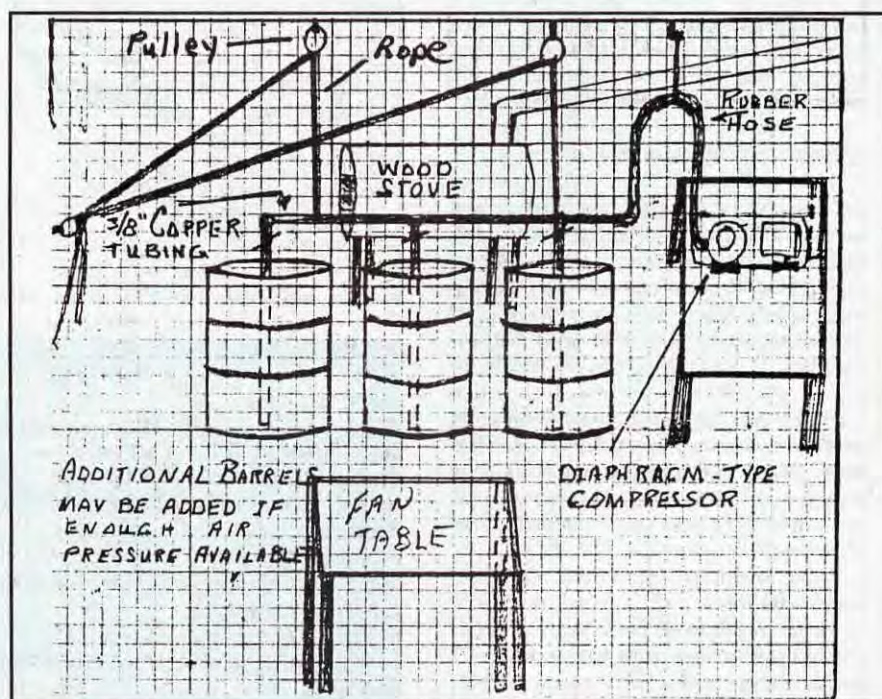 Pulley
Rope
RUBBER
HOSE
WOOD
STOVE
3/8" COPPER
TUBING
ADDITIONAL BARRELS
MAY BE ADDED IF
ENOUGH AIR
PRESSURE AVAILABLE
FAN
TABLE
DIAPHRAGM-TYPE
COMPRESSOR